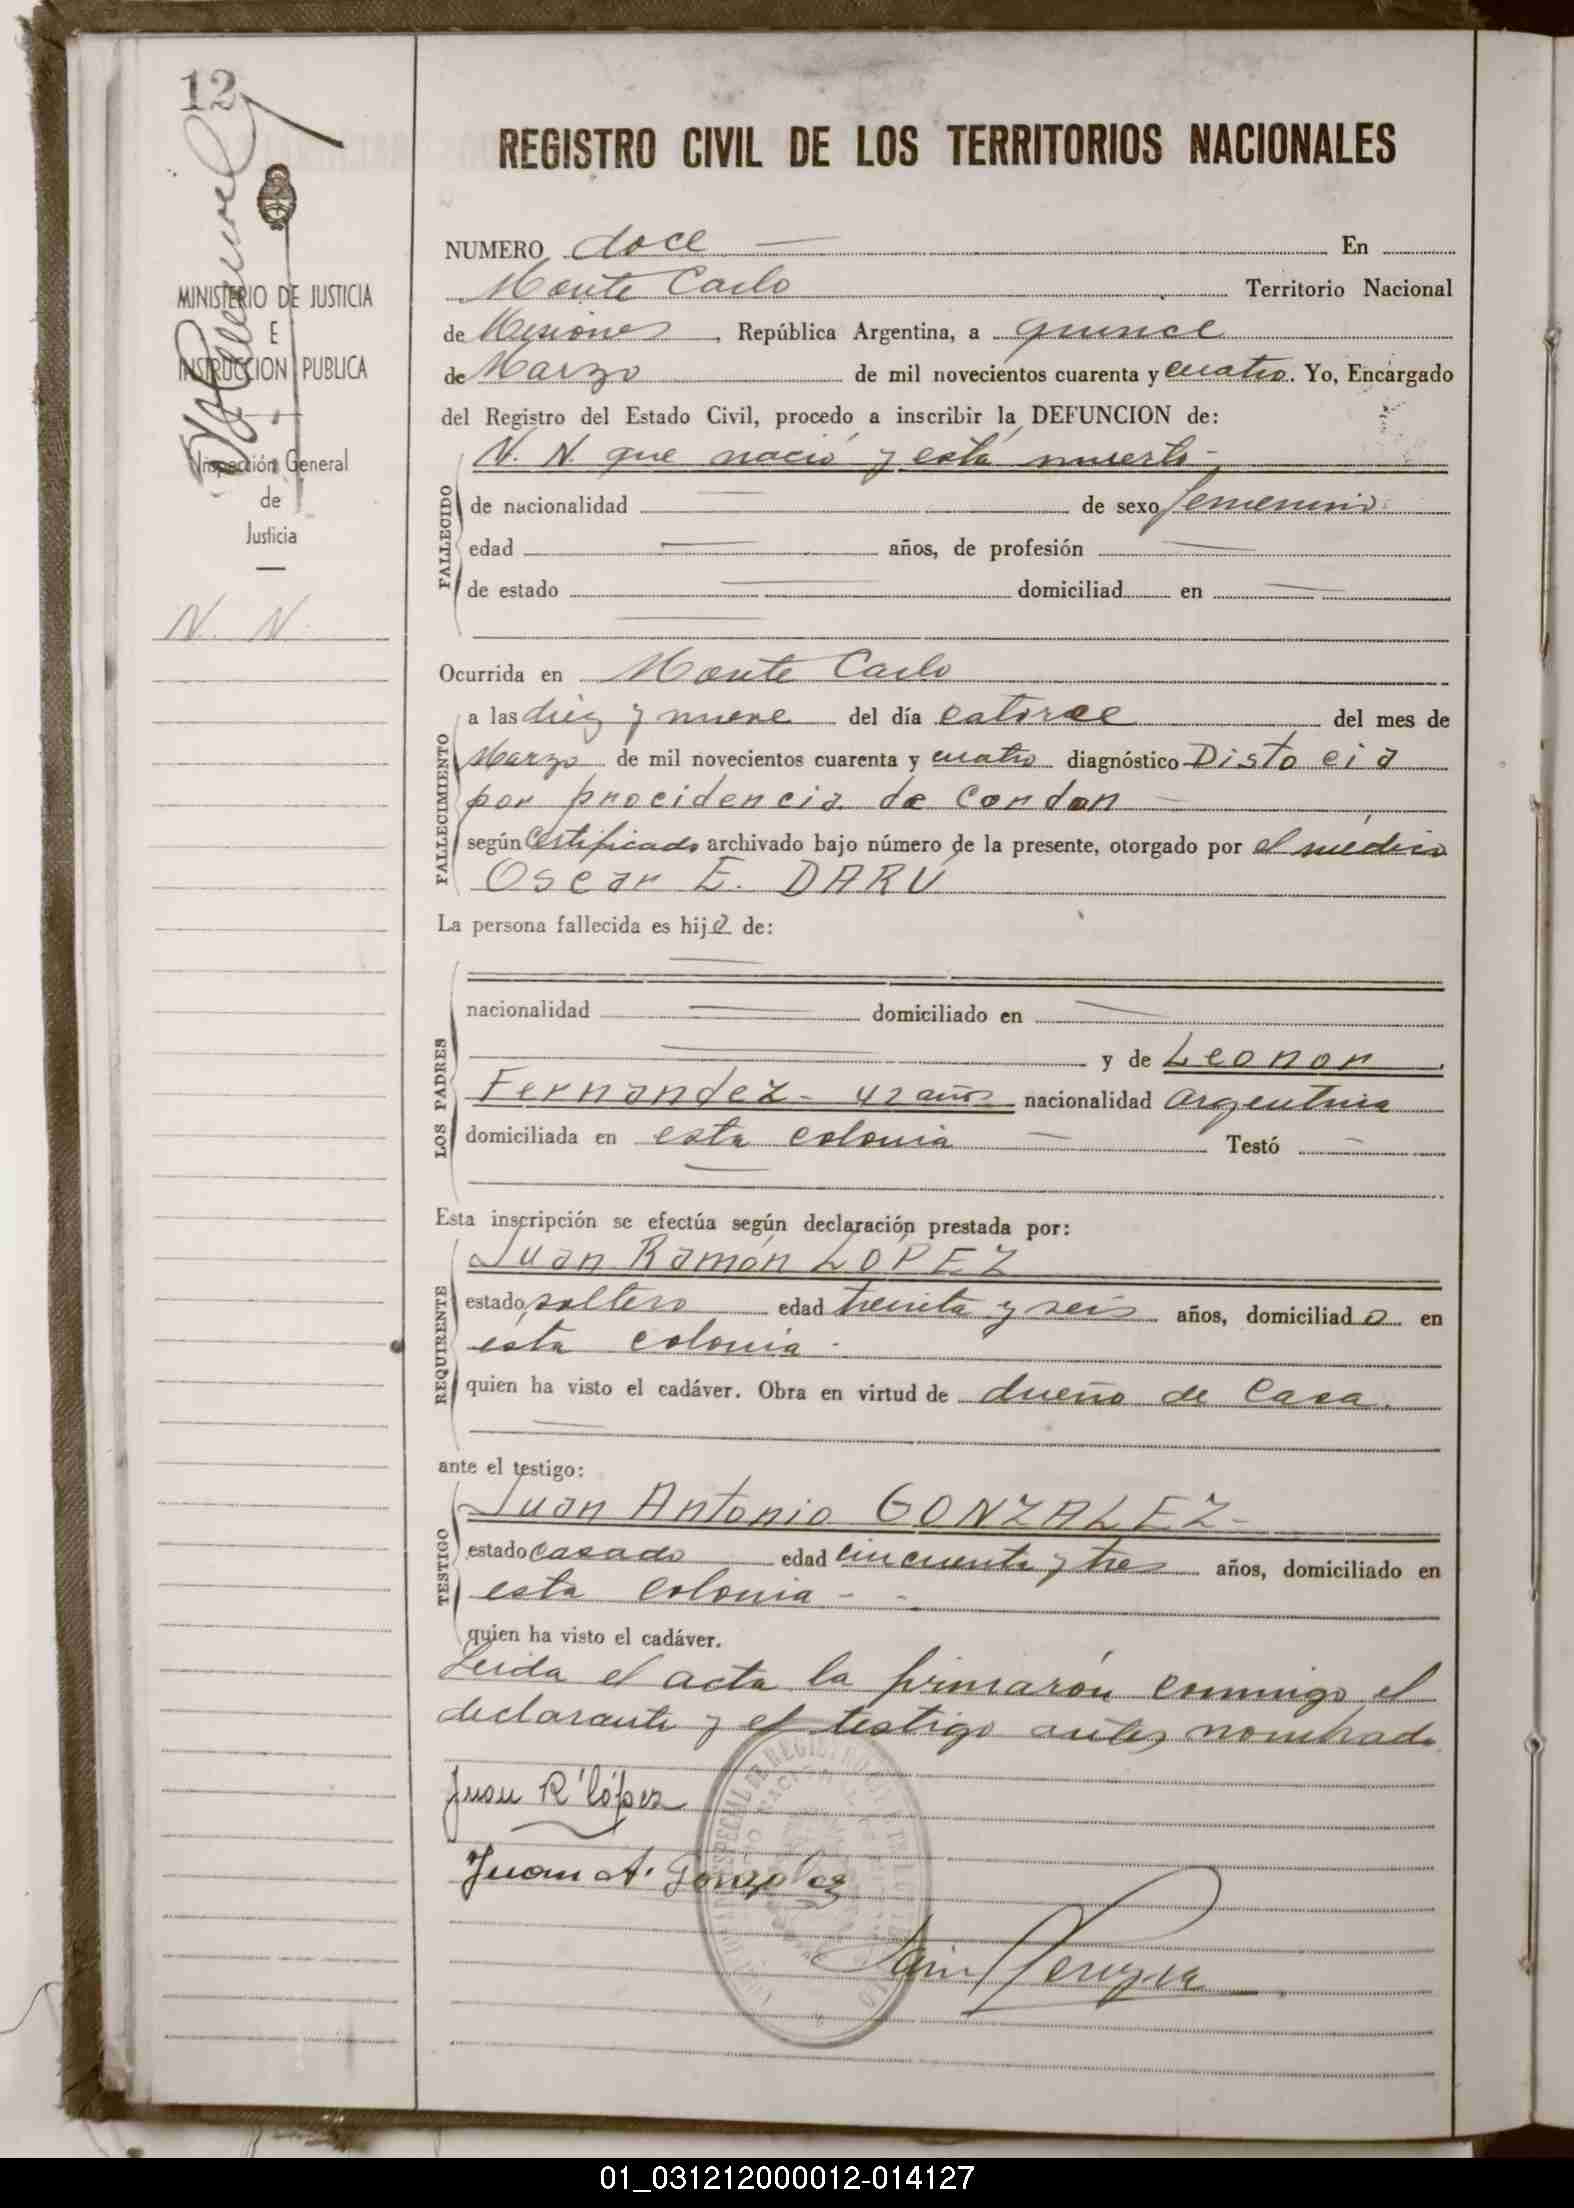 12
MINISTERIO DE JUSTICIA
E
INSTRUCCION PUBLICA
Inspección General
de
Justicia
N. N.
REGISTRO CIVIL DE LOS TERRITORIOS NACIONALES
NUMERO doce — En
Monte Carlo Territorio Nacional
de Misiones, República Argentina, a quince
de Marzo de mil novecientos cuarenta y cuatro. Yo, Encargado
del Registro del Estado Civil, procedo a inscribir la DEFUNCION de:
N. N. que nació y está muerto -
FALLECIDO
de nacionalidad — de sexo femenino.
edad — años, de profesión —
de estado — domiciliad en —
Ocurrida en Monte Carlo
FALLECIMIENTO
a las diez y nueve del día catorce del mes de
Marzo de mil novecientos cuarenta y cuatro diagnóstico Distocia
por procidencia de cordon —
según Certificado archivado bajo número de la presente, otorgado por el médico
Oscar E. DARÚ
La persona fallecida es hija de:
LOS PADRES
—
nacionalidad — domiciliado en —
— y de Leonor
Fernandez - 42 años nacionalidad argentina
domiciliada en esta colonia — Testó —
—
Esta inscripción se efectúa según declaración prestada por:
REQUIRENTE
Juan Ramón LOPEZ
estado soltero edad treinta y seis años, domiciliado en
esta colonia -
quien ha visto el cadáver. Obra en virtud de dueño de casa.
—
ante el testigo:
TESTIGO
Juan Antonio GONZALEZ -
estado casado edad cincuenta y tres años, domiciliado en
esta colonia - -
quien ha visto el cadáver.
Leida el acta la firmarón conmigo el
declarante y el testigo antes nombrado
Juan R. López
Juan A. Gonzalez
01_031212000012-014127